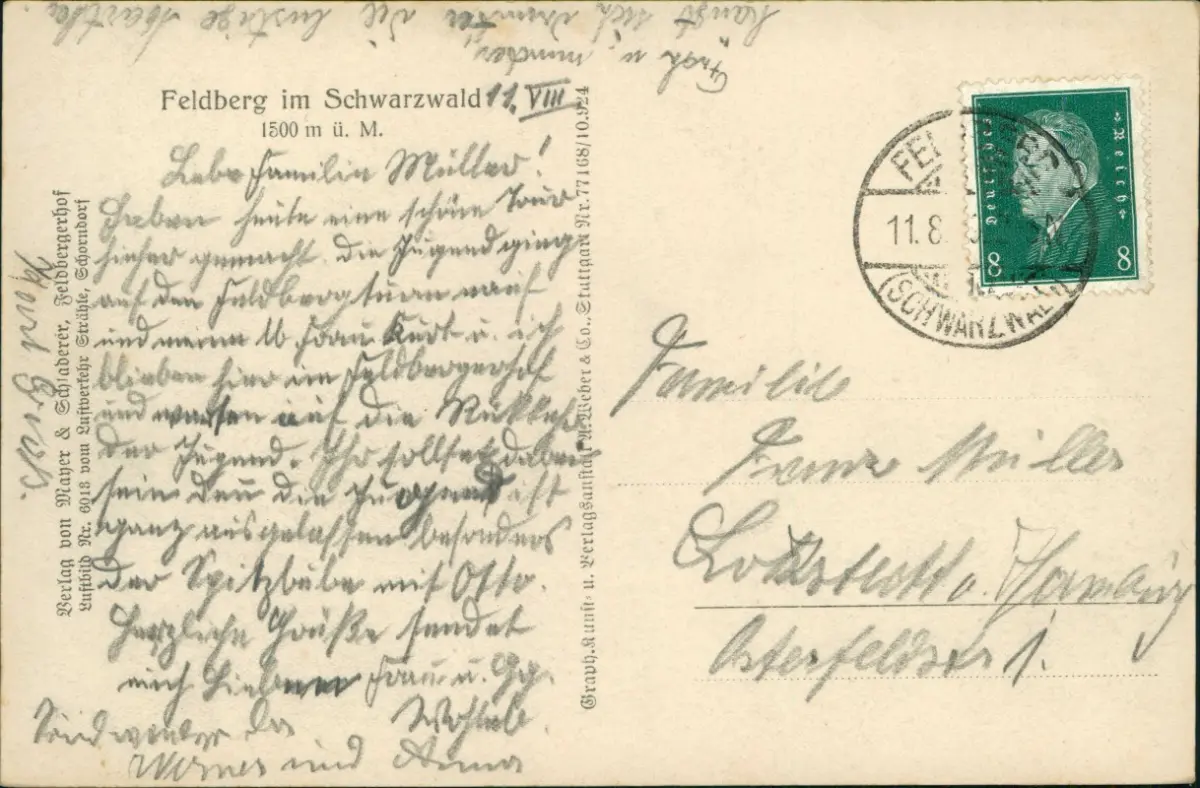 Feldberg im Schwarzwald 11. VIII
1500 m ü. M.
Liebe Familie Müller!
Haben heute eine schöne Tour
hieher gemacht. die Jugend ging
auf den Feldbergturm rauf
und meine Frau u. ich
blieben hier im Feldbergerhof
und warten auf die Rückkehr
der Jugend. Ihr solltet dabei
sein den die Jugend ist
ganz ausgelassen besonders
der Spitzbube mit Otto.
Herzliche Grüße sendet
euch Frau u. Gg.
Wohleb.
Sind wieder da
Werner und Anna
Verlag von Mayer & Schladerer, Feldbergerhof
Luftbild Nr. 6018 vom Luftverkehr Strähle, Schorndorf
Graph. Kunst- u. Verlagsanstalt A. Weber & Co., Stuttgart Nr. 77168/10.924
Frisch u. munter
die lustige Martha
Deutsches Reich
8 8
11.8.
(SCHWARZWALD)
Familie
Franz Müller
Lokstedt b. Hamburg
Osterfeldstr 1.